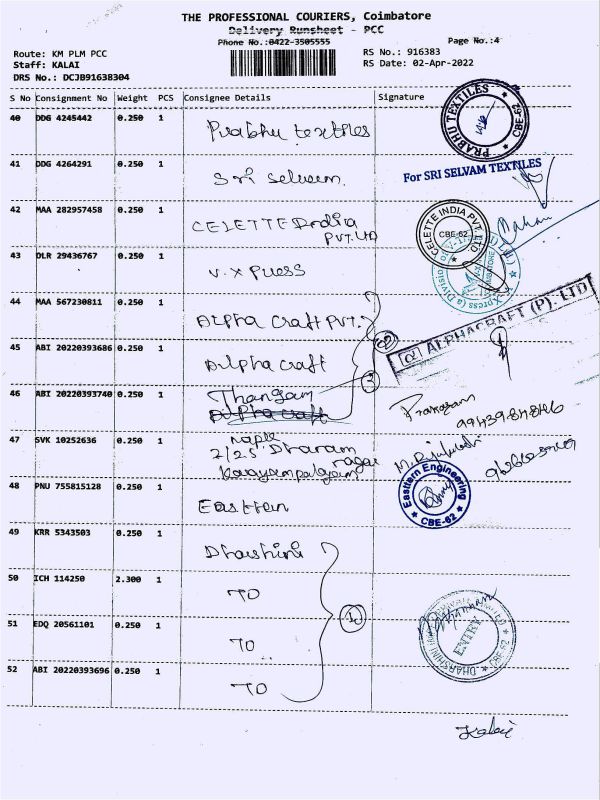 THE PROFESSIONAL COURIERS, Coimbatore
Delivery Runsheet - PCC
Phone No.:0422-3505555
Page No.:4
Route: KM PLM PCC
RS No.: 916383
Staff: KALAI
RS Date: 02-Apr-2022
DRS No.: DCJB91638304
S No Consignment No Weight PCS Consignee Details Signature
40 DDG 4245442 0.250 1
Prabhu textiles
PRABHU TEXTILES CBE-62
41 DDG 4264291 0.250 1
Sri Selvam
For SRI SELVAM TEXTILES
42 MAA 282957458 0.250 1
CELETTE India
PVT. LTD
CELETTE INDIA PVT. LTD CBE-62
43 DLR 29436767 0.250 1
V. X Press
44 MAA 567230811 0.250 1
Alpha Craft PVT.
ALPHACRAFT (P). LTD
45 ABI 20220393686 0.250 1
Alpha Craft
2
46 ABI 20220393740 0.250 1
Thangam
Alpha Craft
3
47 SVK 10252636 0.250 1
2/25 Dharam
nagar
48 PNU 755815128 0.250 1
Eastten
Easttern Engineering
CBE-62
49 KRR 5343503 0.250 1
Dharshini
50 ICH 114250 2.300 1
TO
1
51 EDQ 20561101 0.250 1
TO
DHARSHINI PRIVATE LIMITED CBE 62
ENTRY
52 ABI 20220393696 0.250 1
TO
Kalai